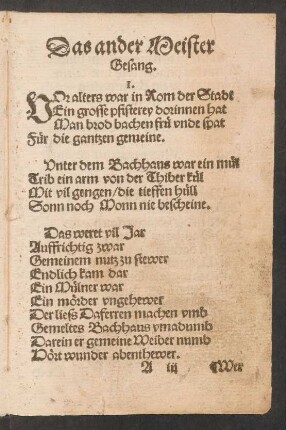 Das ander Meister
Gesang.
1.
VOr alters war in Rom der Stadt
Ein grosse pfisterey dorinnen hat
Man brod bachen frü vnde spat
Für die gantzen gemeine.
Vnter dem Bachhaus war ein mül
Trib ein arm von der Thiber kül
Mit vil gengen/die tieffen hüll
Sonn noch Monn nie bescheine.
Das weret vil Jar
Auffrichtig zwar
Gemeinem nutz zu stewer
Endlich kam dar
Ein Mülner war
Ein mörder vngehewer
Der ließ Daferren machen vmb
Gemeltes Bachhaus vmadumb
Darein er gemeine Weiber numb
Hört wunder abenthewer.
A iij
¶Wer